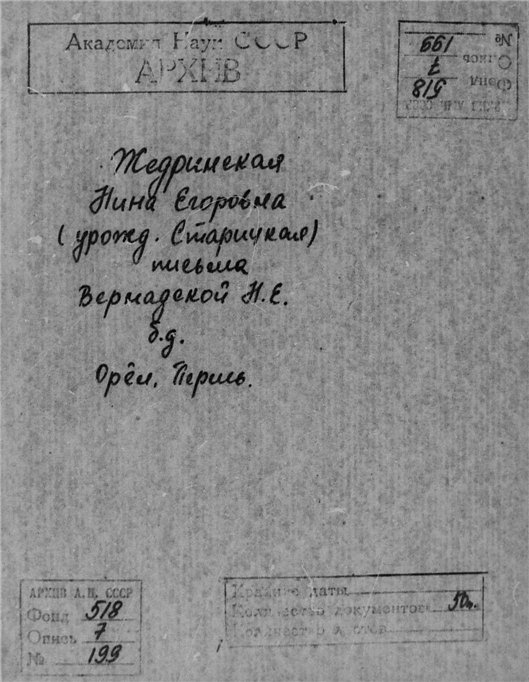 Академия Наук СССР
АРХИВ
№ 199
Опись 7
Фонд 518
Жедринская
Нина Егоровна
(урожд. Старицкая)
письма
Вернадской Н.Е.
б.д.
Орёл, Пермь.
АРХИВ А.Н. СССР
Фонд 518
Опись 7
№ 199
Крайние даты
Количество документов 50
Количество листов